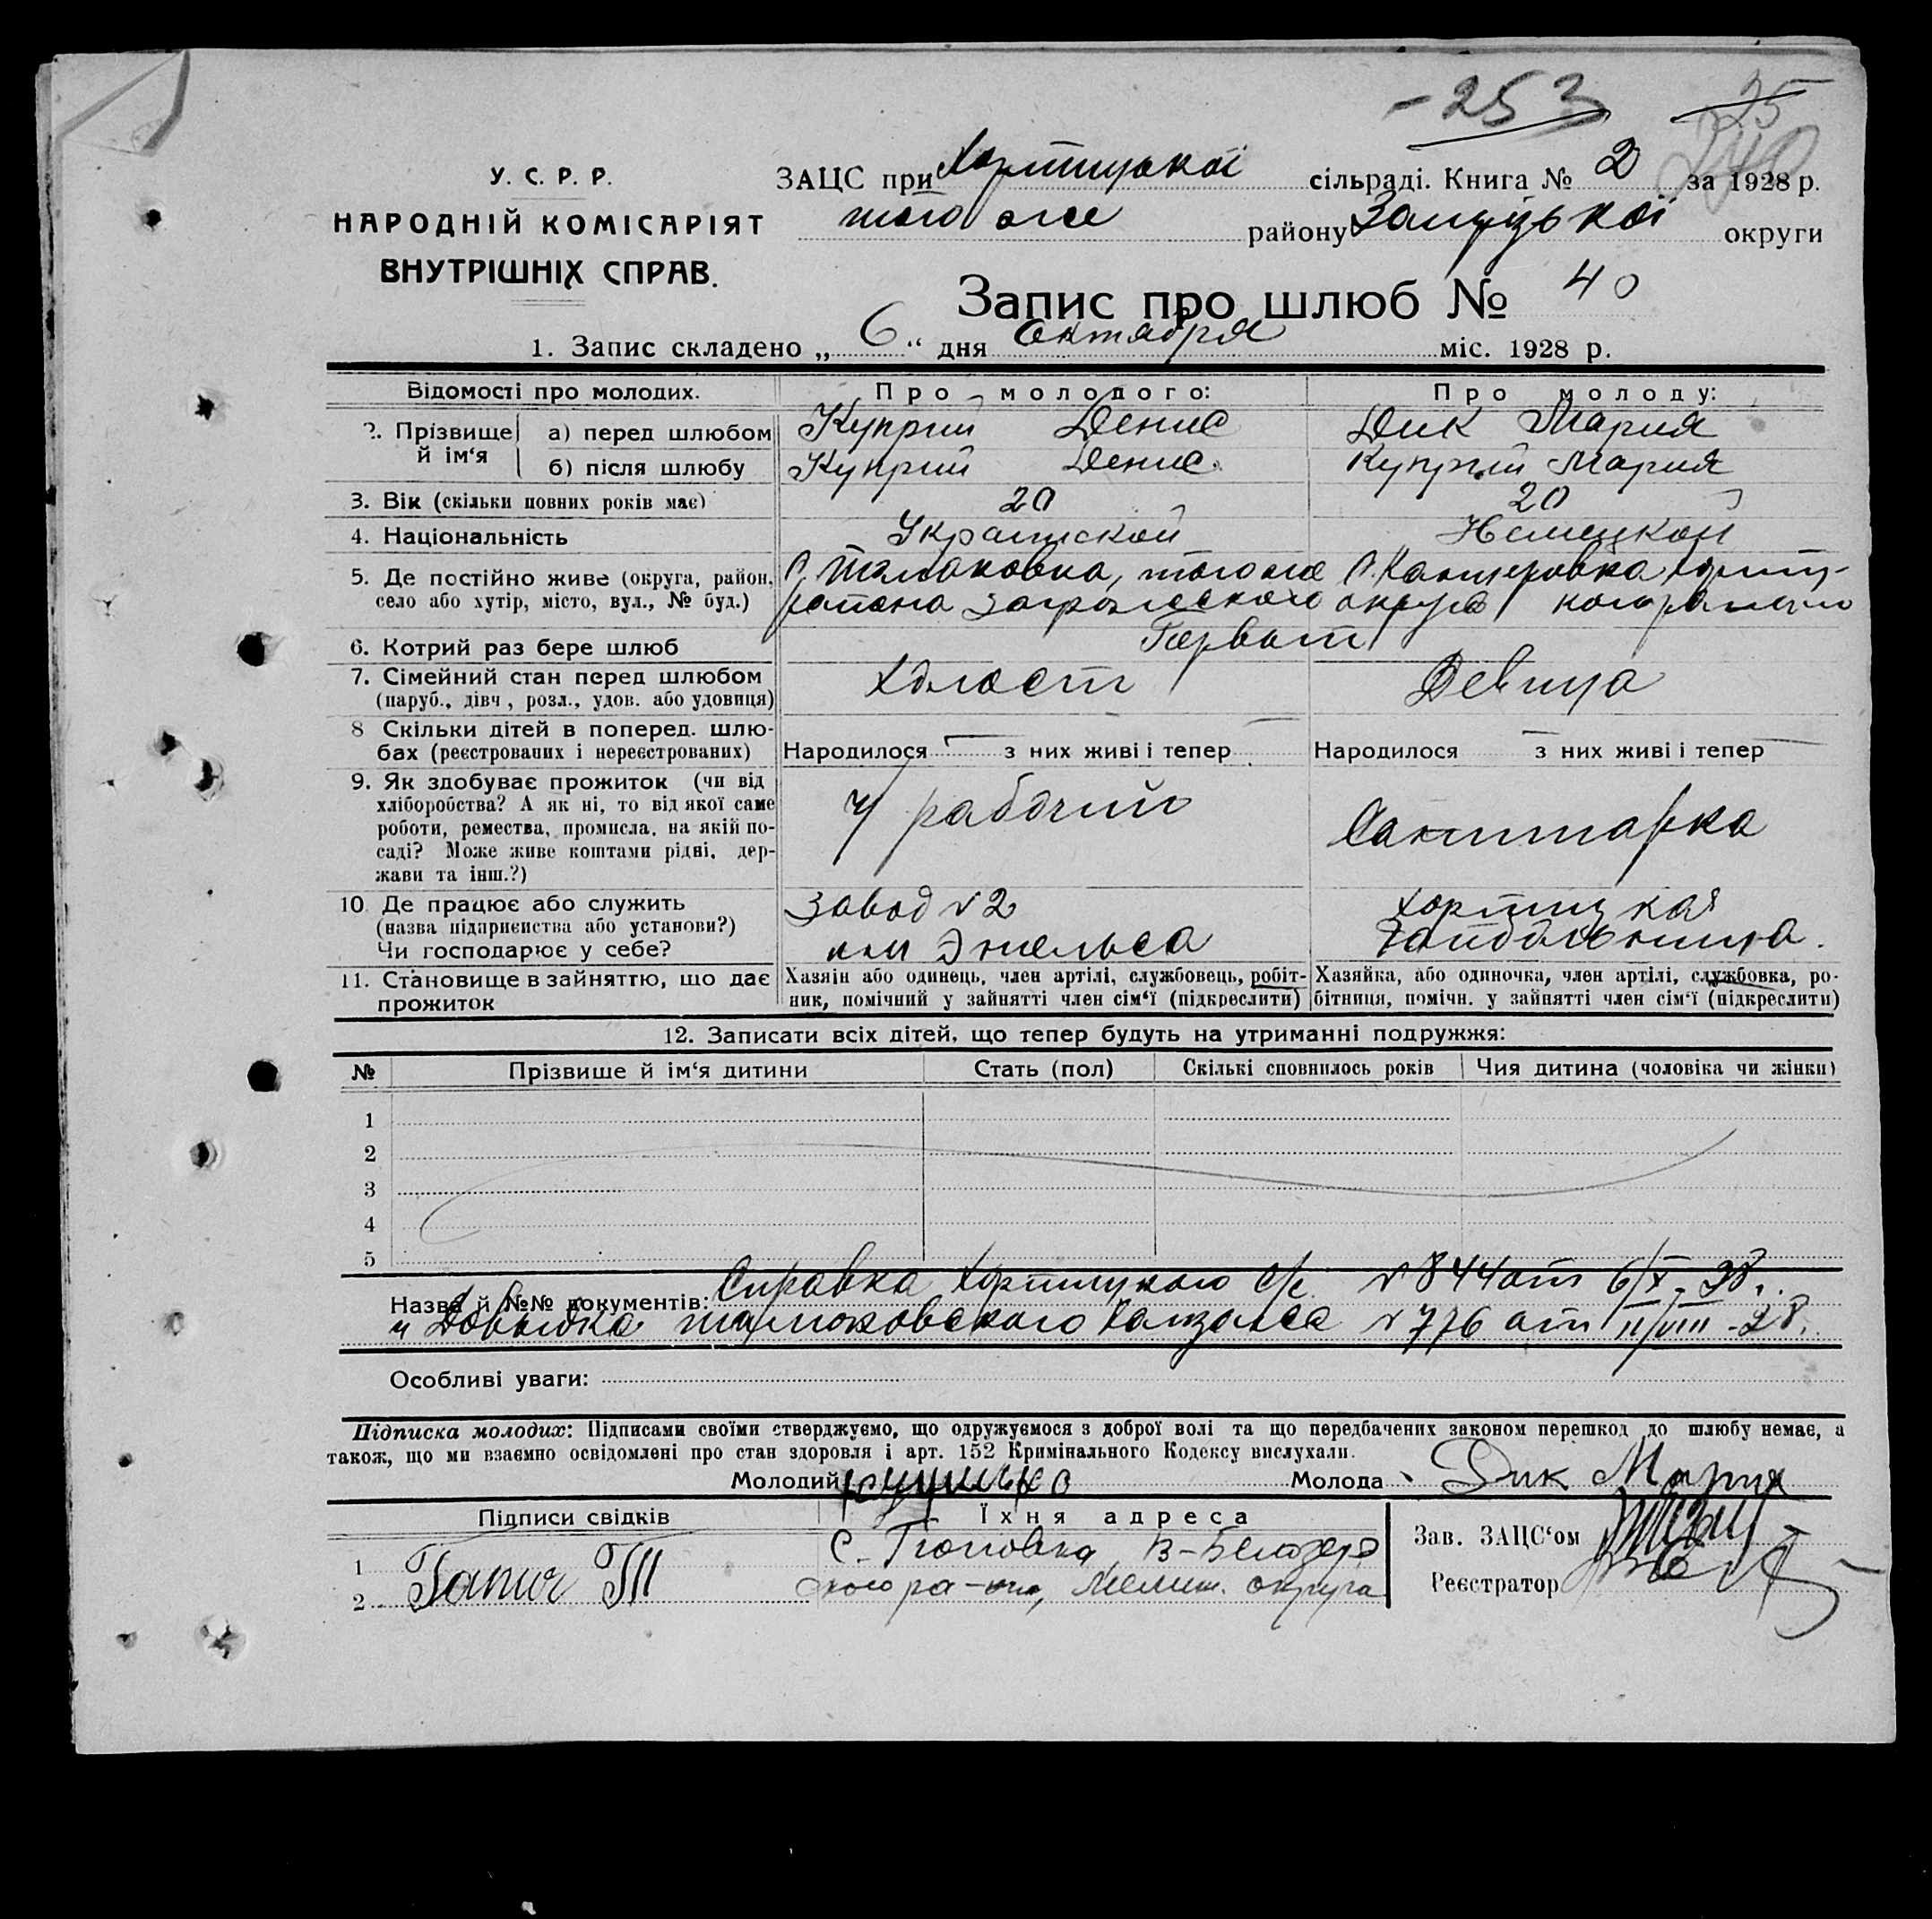 -253 25
240
У. С. Р. Р.
НАРОДНІЙ КОМІСАРІЯТ
ВНУТРІШНІХ СПРАВ.
ЗАЦС при Хортицької сільраді. Книга № 2 за 1928 р.
того же району Запорізької округи
Запис про шлюб № 40
1. Запис складено „ 6 “ дня Октября міс. 1928 р.
Відомості про молодих. Про молодого: Про молоду:
2. Прізвище й ім‘я а) перед шлюбом Куприй Денис Дик Мария
б) після шлюбу Куприй Денис Куприй Мария
3. Вік (скільки повних років має) 20 20
4. Національність Украинской Немецкой
5. Де постійно живе (округа, район, С. Томаковка, того же С. Канцеровка Хортиц-
село або хутір, місто, вул., № буд.) района Запорожского округа кого района
6. Котрий раз бере шлюб Первый
7. Сімейний стан перед шлюбом Холост Девица
(паруб., дівч , розл., удов. або удовиця)
8 Скільки дітей в поперед. шлю-
бах (реєстрованих і нереєстрованих) Народилося з них живі і тепер Народилося з них живі і тепер
9. Як здобуває прожиток (чи від
хліборобства? А як ні, то від якої саме
роботи, ремества, промисла, на якій по- Ч/рабочий Санитарка
саді? Може живе коштами рідні, дер-
жави та інш.?)
10. Де працює або служить Завод №2 Хортицкая
(назва підприємства або установи?)
Чи господарює у себе? им Энгельса Райбольница.
11. Становище в зайняттю, що дає Хазяїн або одинець, член артілі, службовець, робіт- Хазяйка, або одиночка, член артілі, службовка, ро-
прожиток ник, помічний у зайнятті член сім‘ї (підкреслити) бітниця, помічн. у зайнятті член сім‘ї (підкреслити)
12. Записати всіх дітей, що тепер будуть на утриманні подружжя:
№ Прізвище й ім‘я дитини Стать (пол) Скількі сповнилось років Чия дитина (чоловіка чи жінки)
1
2
3
4
5
Назва й №№ документів: Справка Хортицкого с/с №844 от 6/X-28.
и Довидка томаковского №776 от 11/VIII-28.
Особливі уваги:
Підписка молодих: Підписами своїми стверджуємо, що одружуємося з доброї волі та що передбачених законом перешкод до шлюбу немає, а
також, що ми взаємно освідомлені про стан здоровля і арт. 152 Кримінального Кодексу вислухали.
Молодий Молода Дик Мария
Підписи свідків Їхня адреса Зав. ЗАЦС‘ом
1 С. В-Белозер
2 ского ра-на, Мелит. округа Реєстратор